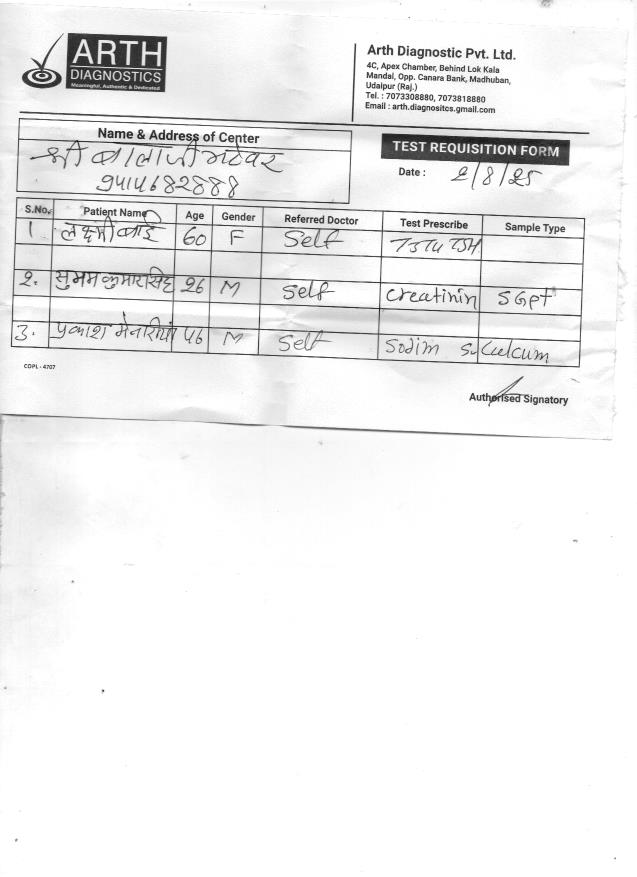 ARTH
DIAGNOSTICS
Meaningful, Authentic & Dedicated
Arth Diagnostic Pvt. Ltd.
4C, Apex Chamber, Behind Lok Kala
Mandal, Opp. Canara Bank, Madhuban,
Udaipur (Raj.)
Tel. : 7073308880, 7073818880
Email : arth.diagnositcs.gmail.com
Name & Address of Center
श्री बालाजी
9414682888
TEST REQUISITION FORM
Date : 2/8/25
S.No. Patient Name Age Gender Referred Doctor Test Prescribe Sample Type
1 लक्ष्मी बाई 60 F Self TSH
2. कुमार सिंह 26 M Self Creatinin SGpt
3. प्रकाश 46 M Self Sodim S. Culcum
CDPL - 4707
Authorised Signatory